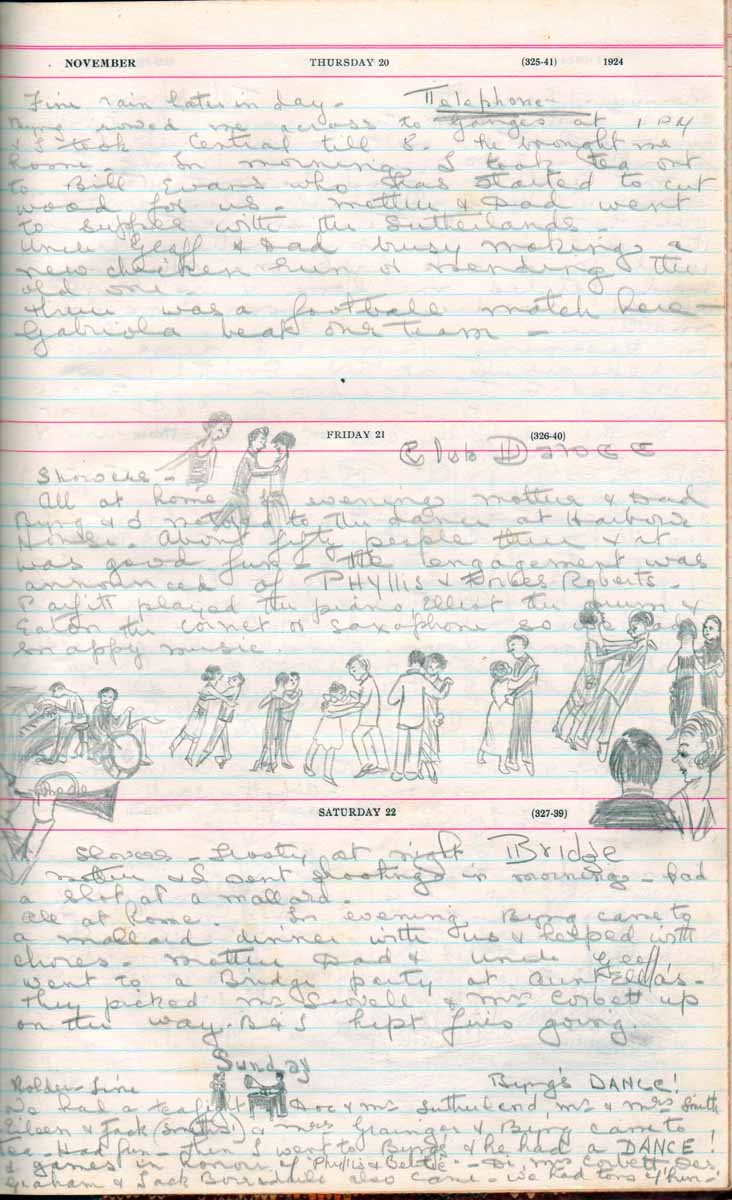 NOVEMBER THURSDAY 20 (325-41) 1924
Fine rain later in day - Telephone
Byng rowed me across to Ganges at 1 PM
& I took Central till 8. He brought me
home. In morning I took tea out
to Bill Evans who has started to cut
wood for us - Mother & Dad went
to supper with the Sutherlands -
Uncle Geoff & Dad busy making a
new chicken run & mending the
old one -
There was a football match here -
Gabriola beat our team -
FRIDAY 21 (326-40)
Club Dance
Showers -
All at home. In evening Mother & Dad
Byng & I motored to the dance at Harbour
House. About fifty people there & it
was good fun - The engagement was
announced of Phyllis & Roberts -
played the piano, Elliot the drum &
Eaton the cornet & saxaphone so we had
snappy music.
SATURDAY 22 (327-39)
Showers - Frosty at night Bridge
Mother & I went shooting in morning - had
a shot at a mallard.
All at home. In evening Byng came to
a mallard dinner with us & helped with
chores - Mother Dad & Uncle Geoff
went to a Bridge party at Aunt Ella's -
They picked Mrs & Mrs Corbett up
on the way. B & I kept fires going.
Sunday
Colder - Fine Byng's DANCE!
We had a tea fight Doc & Mrs Sutherland, Mr & Mrs Smith
Eileen & Jack (Smith) & Mrs Grainger & Byng came to
tea - Had fun - then I went to Byng's & he had a DANCE!
& games in honour of Phyllis & - Di, Mrs Corbett, Des,
Graham & Jack also came - we had tons of fun -